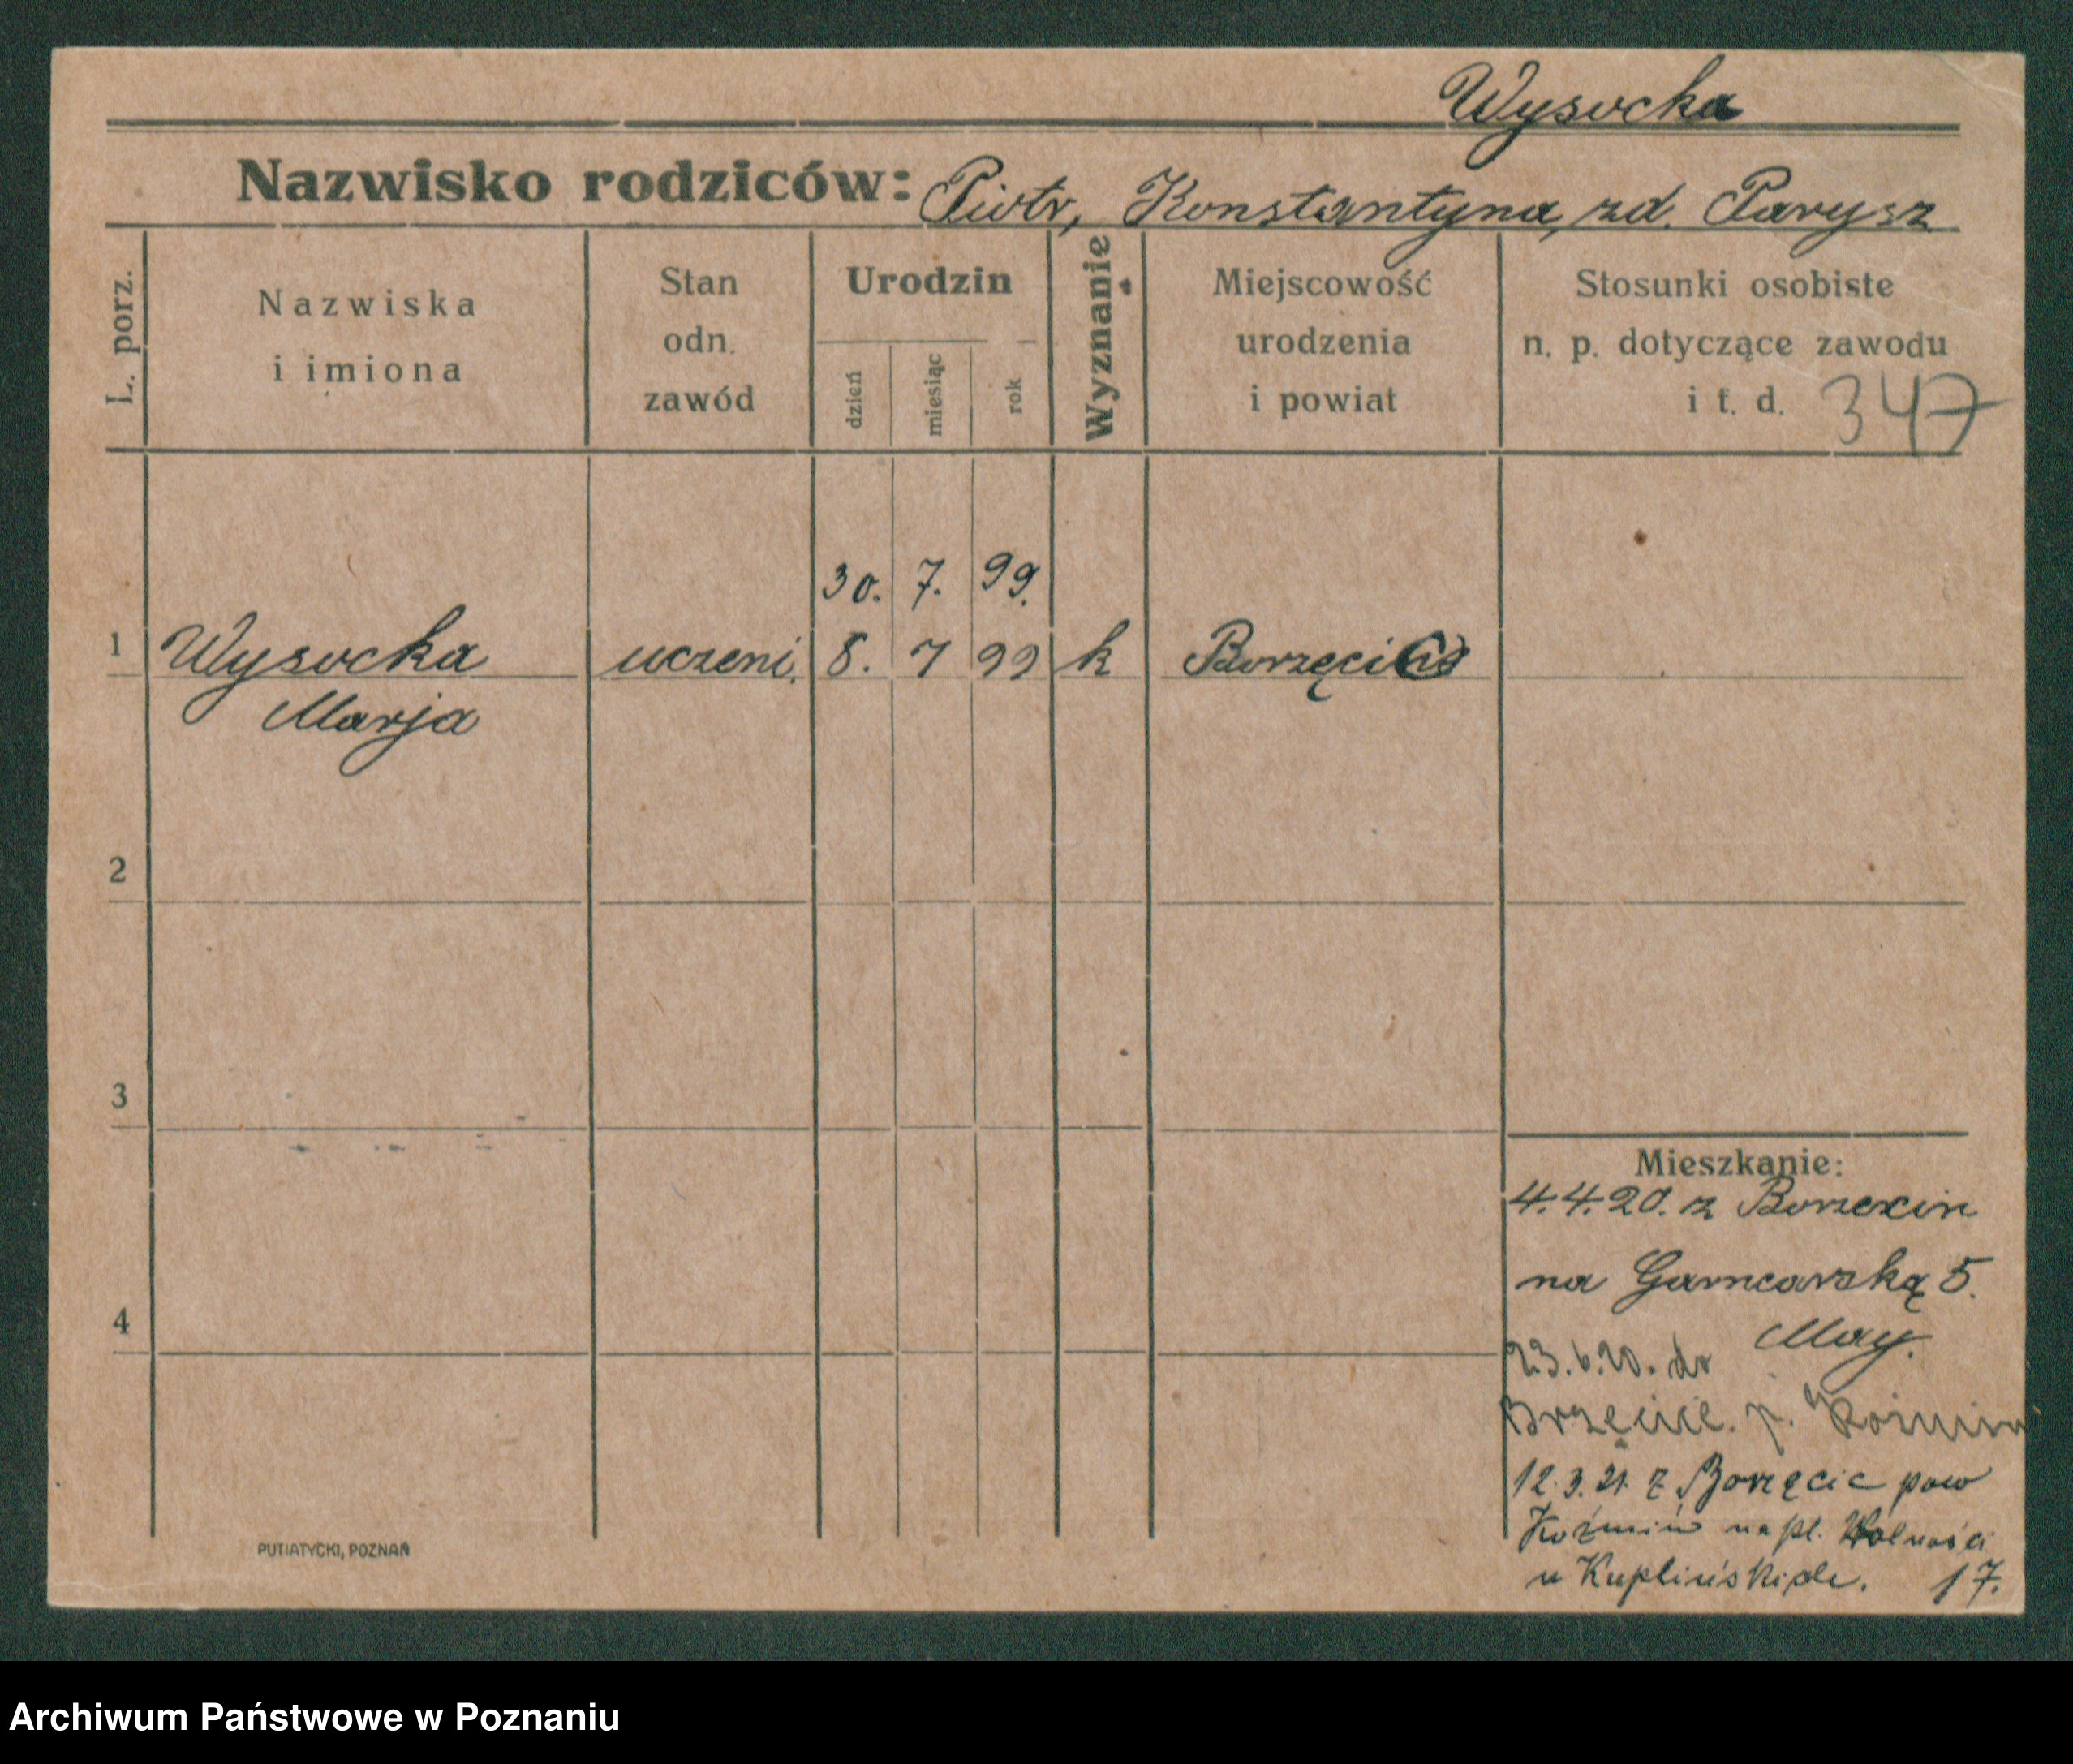 Wysocka
Nazwisko rodziców: Piotr, Konstantyna, zd. Parysz
L. porz.
Nazwiska
i imiona
Stan
odn.
zawód
Urodzin
dzień
miesiąc
rok
Wyznanie
Miejscowość
urodzenia
i powiat
Stosunki osobiste
n. p. dotyczące zawodu
i t. d. 347
30. 7. 99.
1 Wysocka uczeni. 8. 7 99 k
Marja
2
3
4
Mieszkanie:
4.4.20. z
na Garncarską 5.
May.
23.6.20. do
p. Koźmin
12.3.21. z Borzęcic pow
Koźmin na pl. Wolności
u 17.
PUTIATYCKI, POZNAŃ
Archiwum Państwowe w Poznaniu